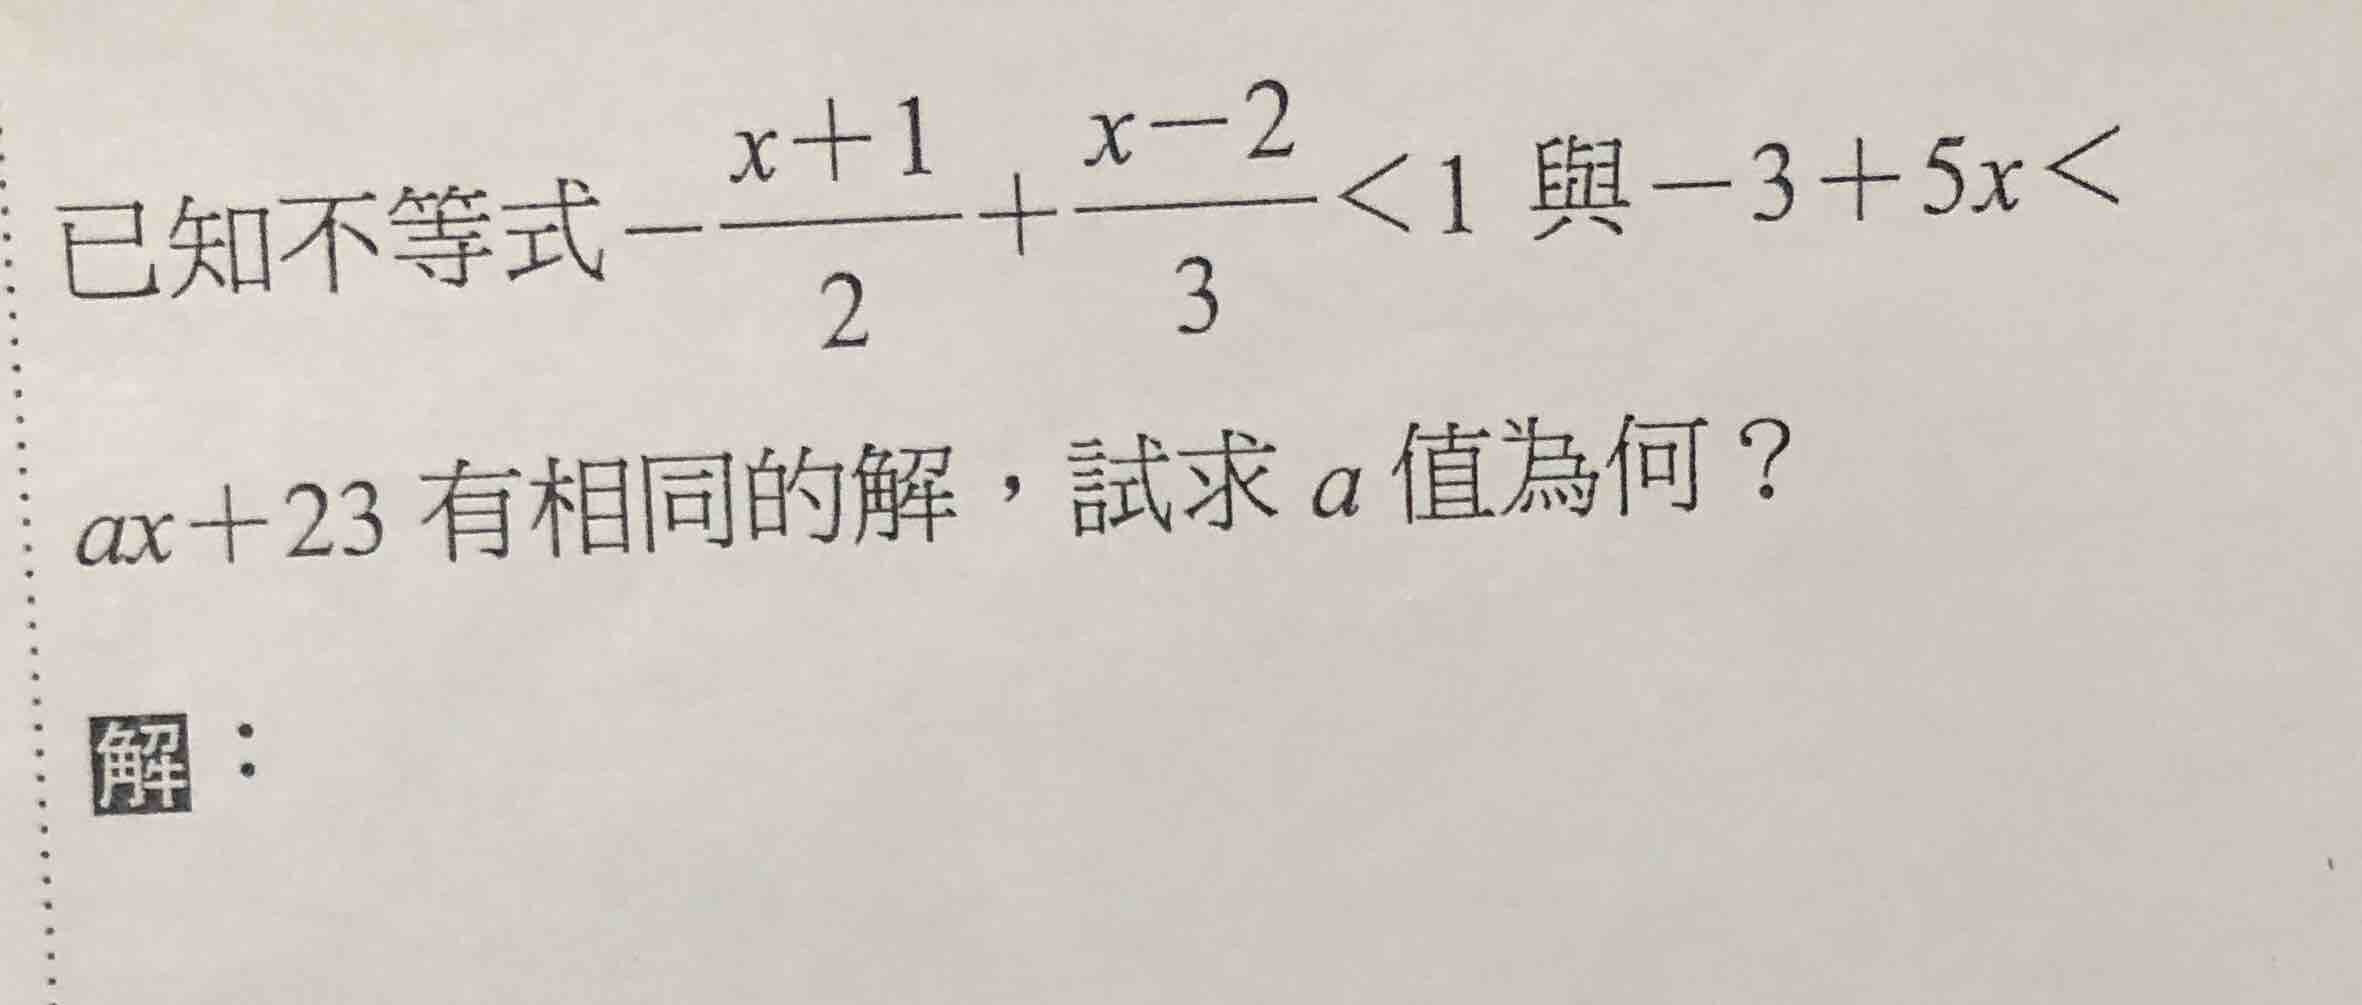 已知不等式－\frac{x＋1}{2}＋\frac{x－2}{3}＜1 與－3＋5x＜
ax＋23 有相同的解，試求 a 值為何？
解：